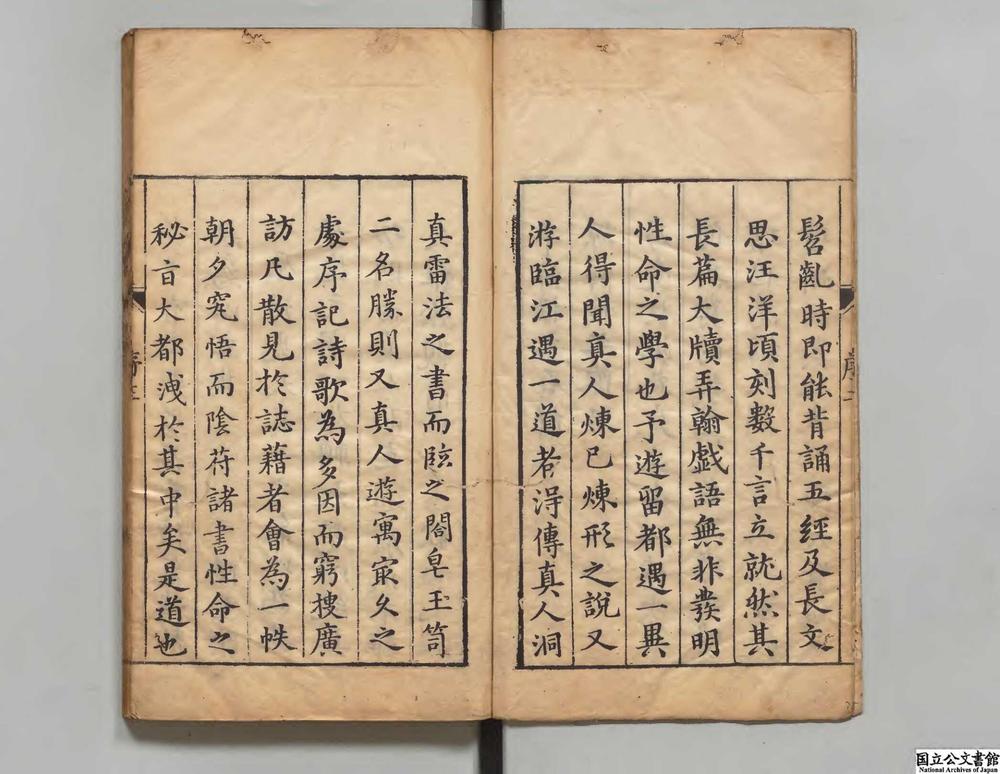 髫齓時即能背誦五經及長文
思汪洋頃刻數千言立就然其
長篇大牘弄翰戯語無非發明
性命之學也予遊留都遇一異
人得聞真人煉已煉形之說又
游臨江遇一道者得傳真人洞
真雷法之書而臨之閤皂玉笥
二名勝則又真人遊寓㝡久之
處序記詩歌為多因而窮搜廣
訪凡散見於誌藉者會為一帙
朝夕究悟而陰符諸書性命之
秘旨大都洩於其中矣是道也
序三
国立公文書館
National Archives of Japan